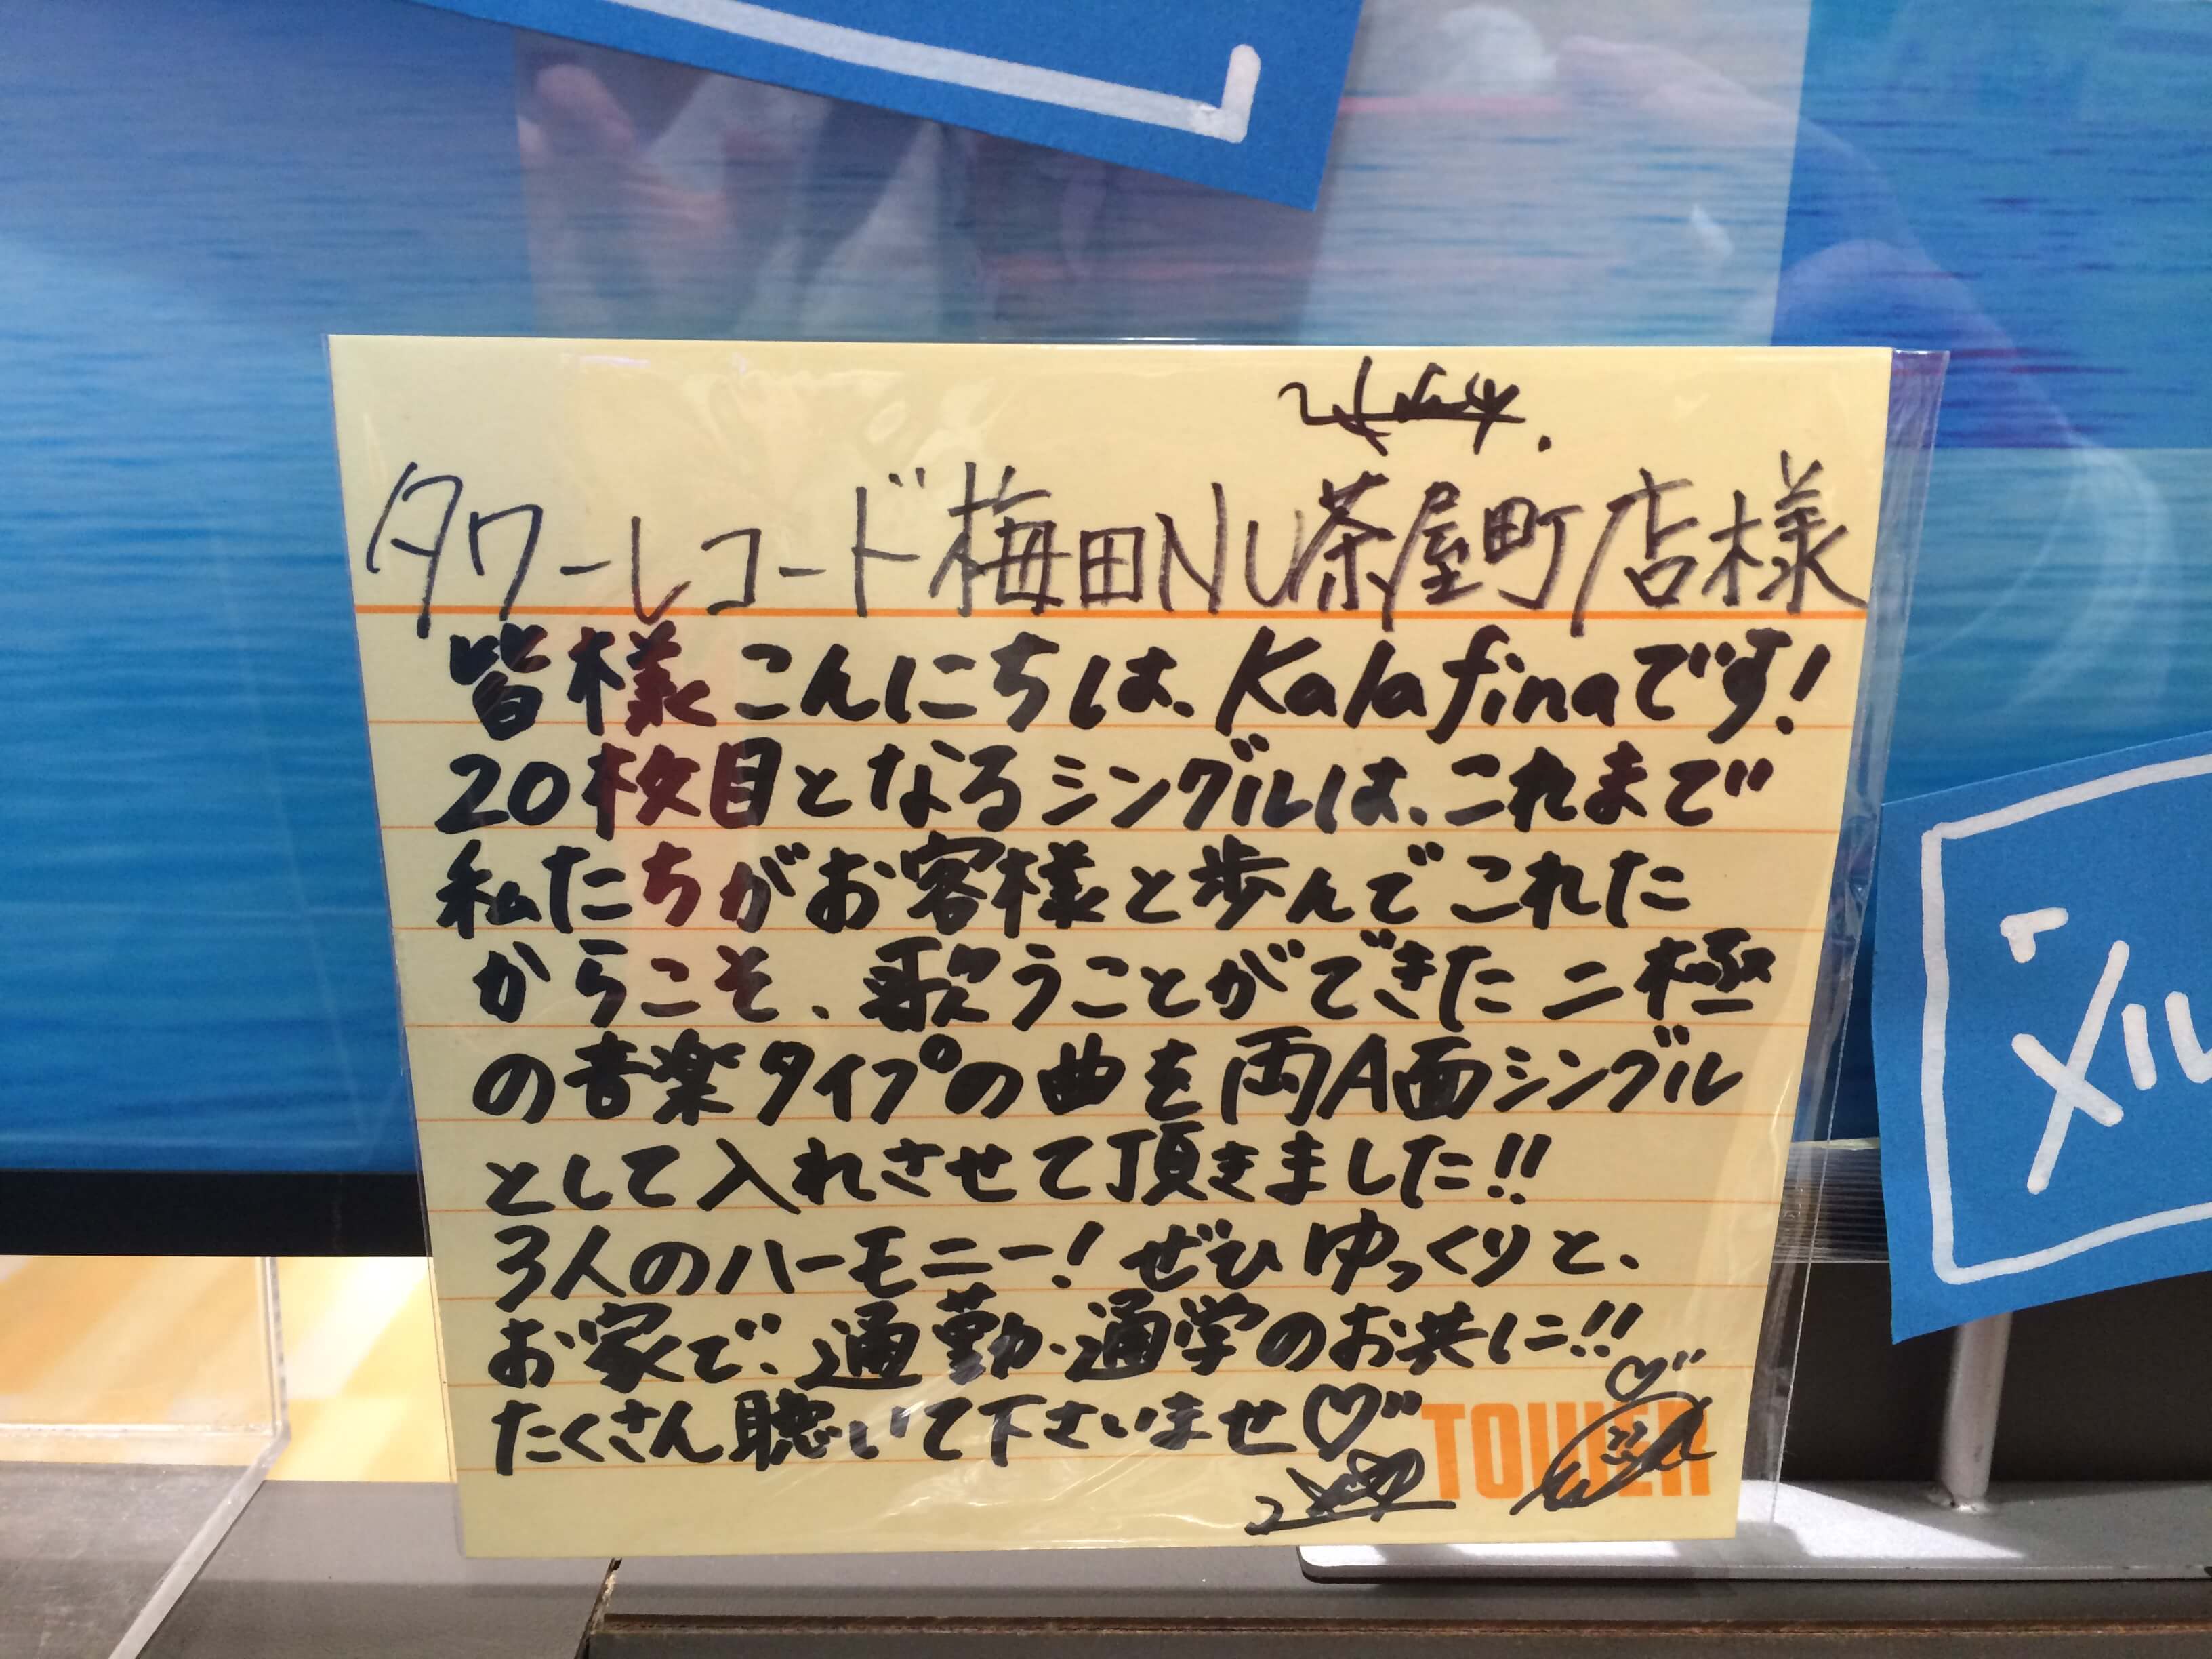 タワーレコード梅田NU茶屋町店様
皆様こんにちは、Kalafinaです!
20枚目となるシングルは、これまで
私たちがお客様と歩んでこれた
からこそ、歌うことができた二極
の音楽タイプの曲を両A面シングル
として入れさせて頂きました!!
3人のハーモニー!ぜひゆっくりと、
お家で、通勤・通学のお共に!!
たくさん聴いて下さいませ♡
TOWER